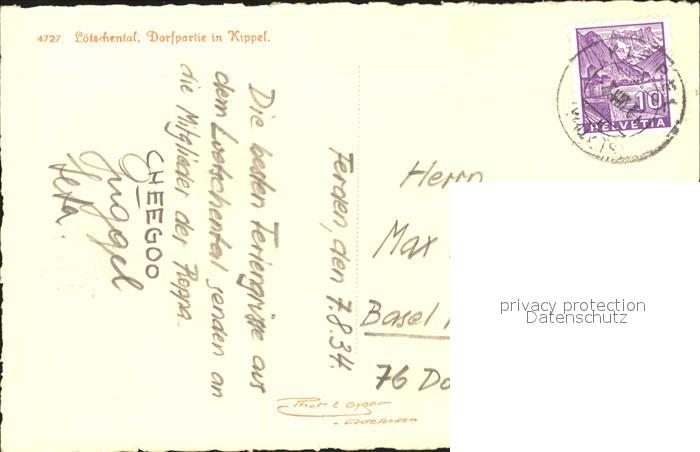 4727 Lötschental, Dorfpartie in Kippel.
10
HELVETIA
Ferden, den 7.8.34.
Die besten Feriengrüsse aus
dem Loetschental senden an
die Mitglieder der Roppa.
CHEEGOO
Herrn
Max
Basel
76 Do
privacy protection
Datenschutz